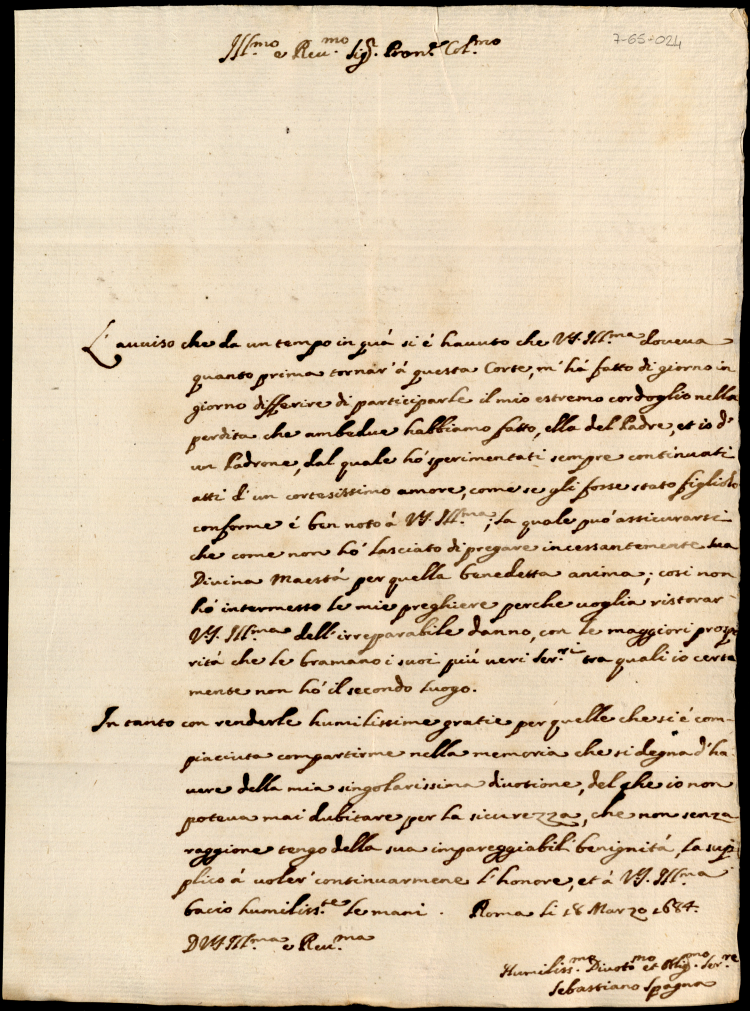 7-65-024
Ill.mo e Reu.mo Sig.r Pron.e Col.mo
L'auuiso che da un tempo in quà si è hauuto che V.S. Ill.ma doueua
quanto prima tornar' à questa Corte, m'hà fatto di giorno in
giorno differire di participarle il mio estremo cordoglio nella
perdita che ambedue habbiamo fatto, ella del Padre, et io d'
un Padrone, dal quale hò sperimentati sempre continuati
atti d'un cortesissimo amore, come se gli fosse stato figliolo
conforme è ben noto à V.S. Ill.ma; la quale può assicurarsi
che come non hò lasciato di pregare incessantemente sua
Diuina Maestà per quella benedetta anima; così non
hò intermesso le mie preghiere perche voglia ristorar
V.S. Ill.ma dell'irreparabile danno, con le maggiori prospe
rità che le bramano i suoi più ueri Ser.ri tra quali io certa
mente non hò il secondo luogo.
In tanto con renderle humilissime gratie per quelle che si è com
piaciuta compartirme nella memoria che si degna d'ha
uere della mia singolarissima diuotione, del che io non
poteua mai dubitare per la sicurezza, che non senza
raggione tengo della sua impareggiabil' benignità, la sup
plico à uoler' continuarmene l'honore, et à V.S. Ill.ma
bacio humiliss.te le mani. Roma li 18 Marzo 1684.
D V.S. Ill.ma e Reu.ma
Humiliss.mo Diuot.mo et Oblig.mo Ser.re
Sebastiano Spagna